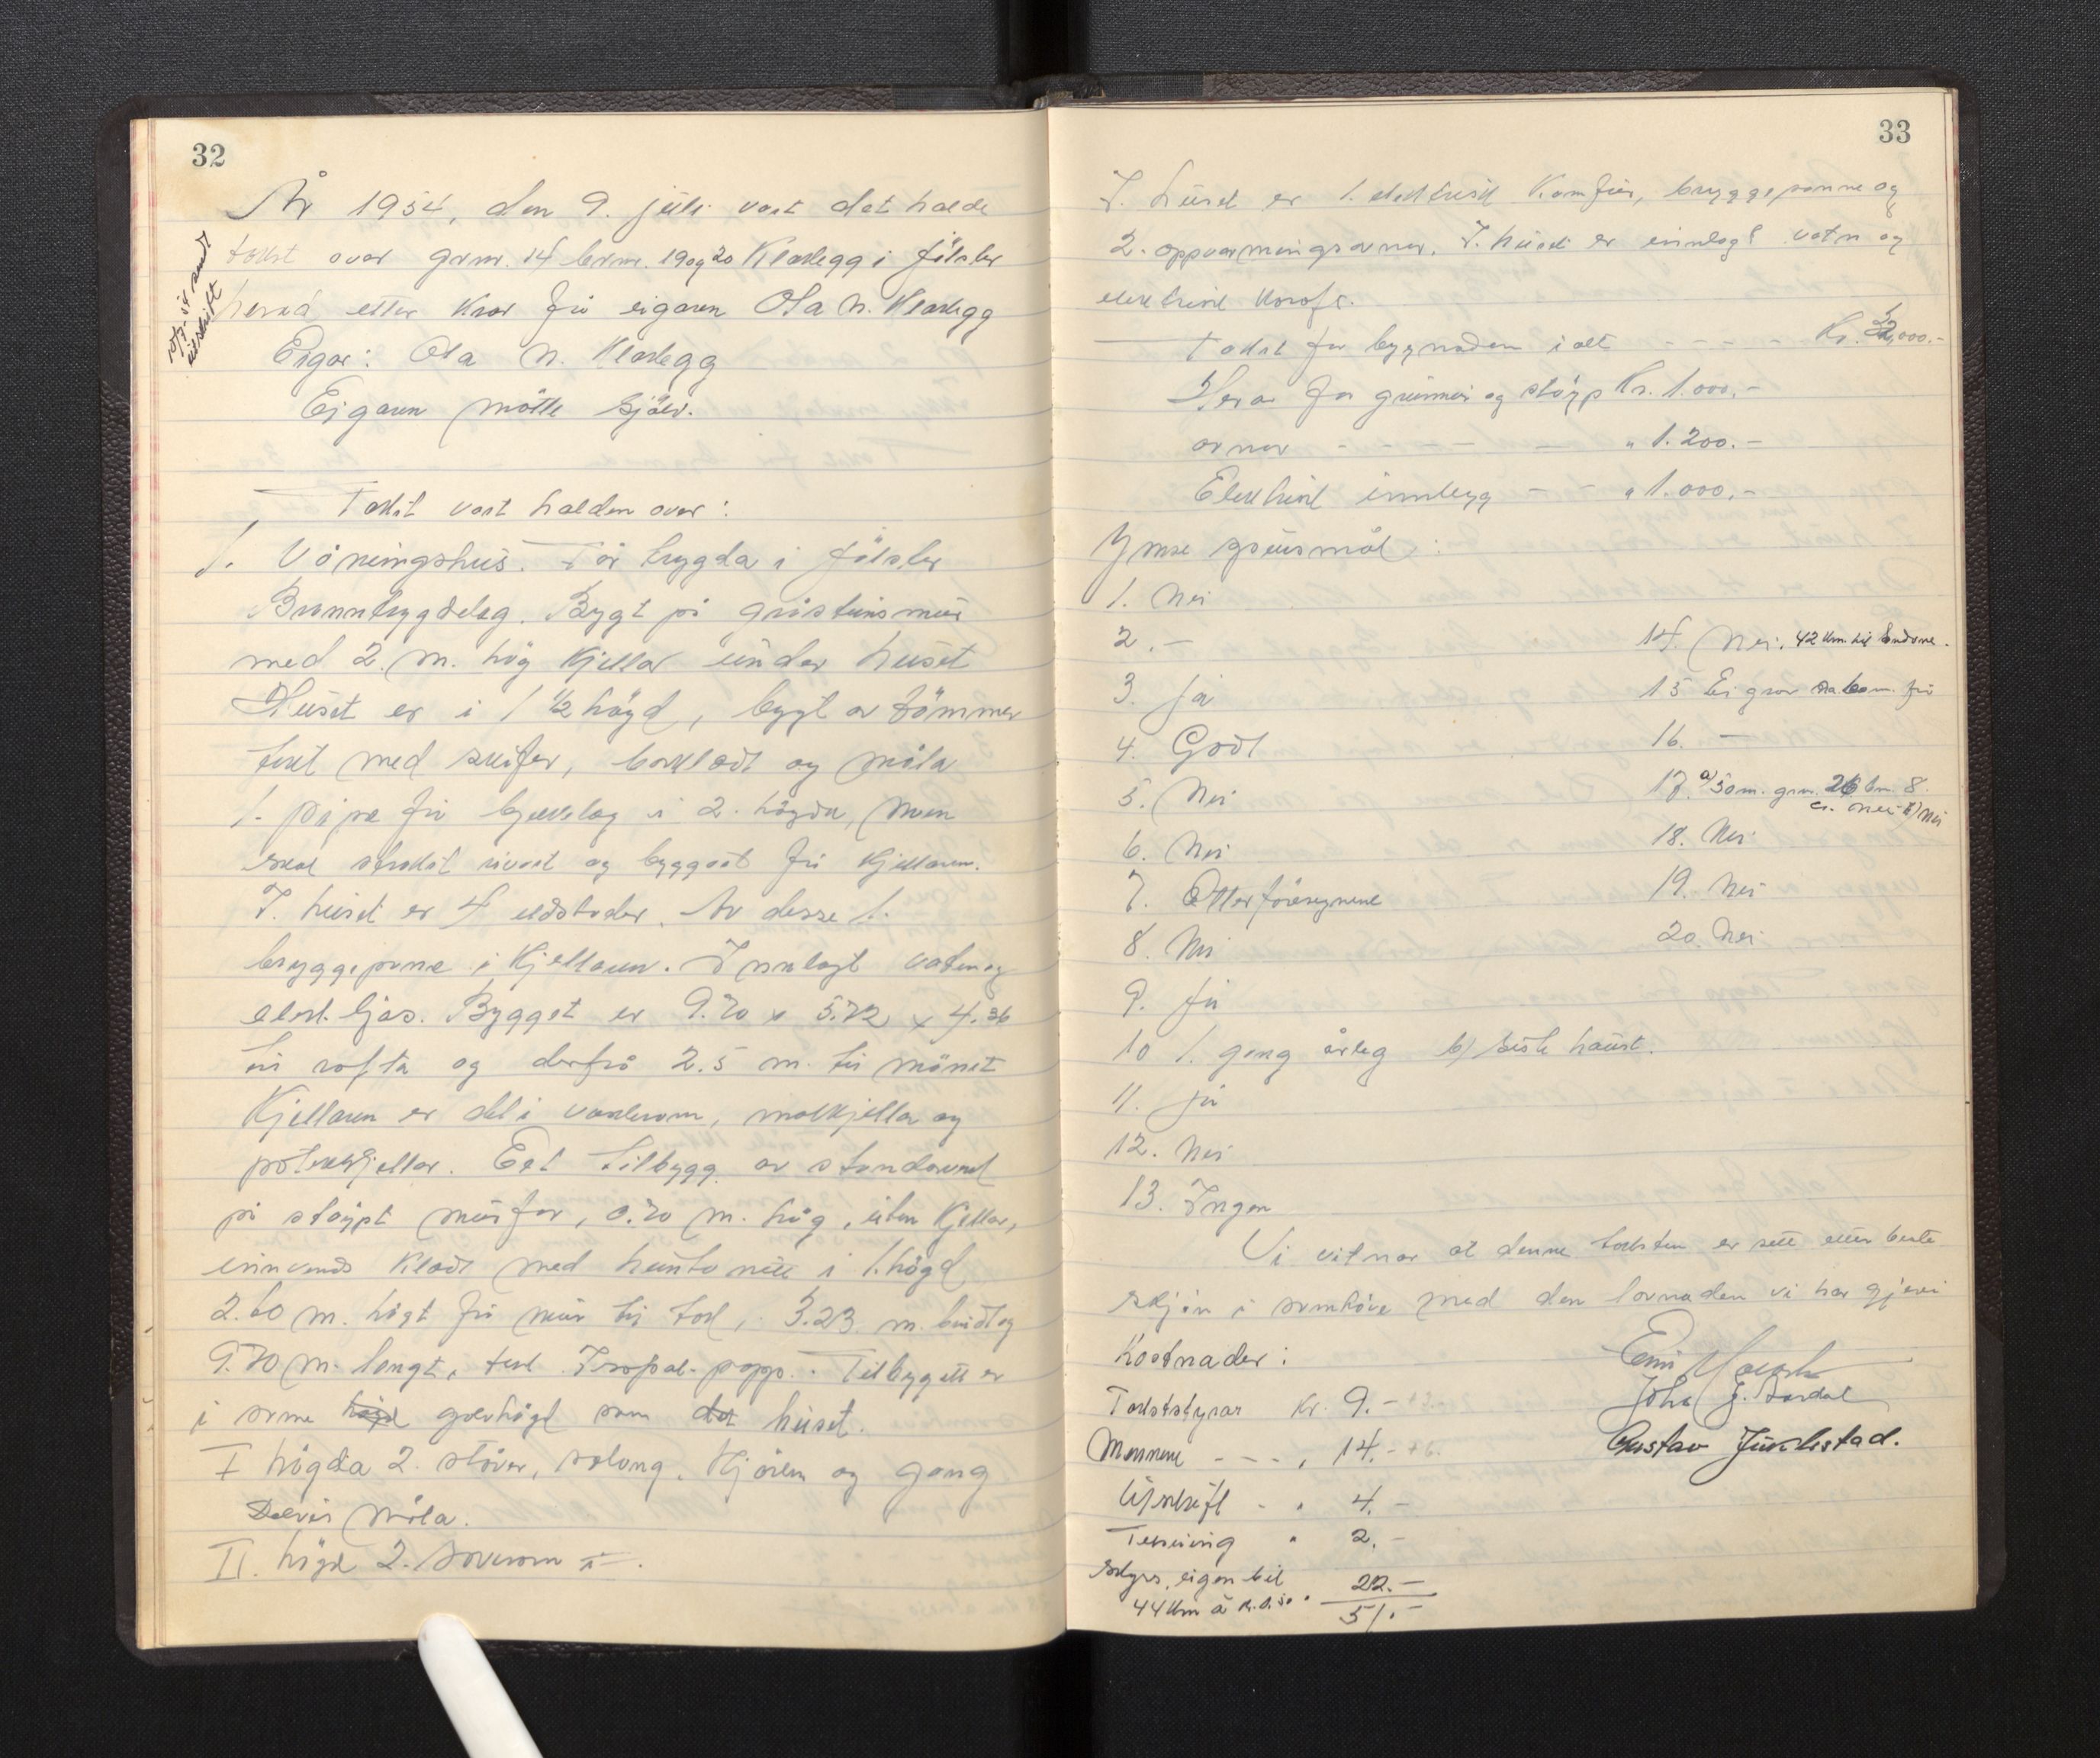 32
År 1954, den 9. juli vart det halde
takst over grnr. 14 brnr. 19 og 20 Klakegg i Jölster
herad etter krav frå eigaren Ola N. Klakegg
10/7-54 sendt
utskrift
Eigar: Ola N. Klakegg
Eigaren møtte sjølv.
Takst vart halden over:
1. Våningshus. Før trygda i Jölster
Branntrygdelag. Bygt på gråsteinsmur
med 2. m. høg kjellar under huset
Huset er i 1 1/2 högd, bygt av tömmer
tekt med skifer, bordkledt og måla
1. pipe frå bjelkelag i 2. högda, men
skal straks rivast og byggast frå kjellaren.
I. huset er 4 eldstader. Av desse 1.
bryggepanne i kjellaren. Innlagt vatn og
elekt. ljos. Bygget er 9.70 x 5.72 x 4.36
til rafta og derfrå 2.5 m. til mönet
Kjellaren er delt i vaskerom, matkjellar og
potetkjellar. Eet tilbygg av standarverk
på støypt mur for, 0.70 m. høg, uten kjellar,
innvends kledt med huntonitt i 1. högd
2.60 m. høgt frå mur til tak, 3.23 m. breidt og
9.70 m. langt, tekt Isopal-papp. Tilbygget er
i same høgd golvhögd som det huset.
I högda 2. stover, salong, kjöken og gang
Delvis måla.
II. högd 2. soverom
33
I. huset er 1. elektrisk komfur, bryggepanne og
2. oppvarmingsovnar. I. huset er innlagt vatn og
elektrisk kraft.
Takst for bygnaden i alt - - - - Kr. 32,000.-
Herav for grunnmur og støyp Kr. 1.000.-
ovner - - - - - " 1.200.-
Elektrisk innlegg - - " 1.000.-
Ymse spursmål:
1. Nei
2. -
3. Ja
4. Godt
5. Nei
6. Nei
7. Etter föresegnene
8. Nei
9. Ja
10 1. gong årleg b) siste haust.
11. Ja
12. Nei
13. Ingen
14. Nei. 42 km. til
15 Eigar
16. -
17. a) Som. grn. 26 bn. 8.
c. nei b) Nei
18. Nei
19. Nei
20. Nei
Vi vitnar at denne taksten er sett etter beste
skjön i samhøve med den lovnaden vi har gjeve
Kostnader:
Takststyrar Kr. 9.-
Mennene - - - " 14.-
Utskrift - " 4.-
Teikning " 2.-
Skyss, eigen bil
44 km à kr. 0.50 " 22.-
51.-
John J. Årdal
Gustav Juklestad.